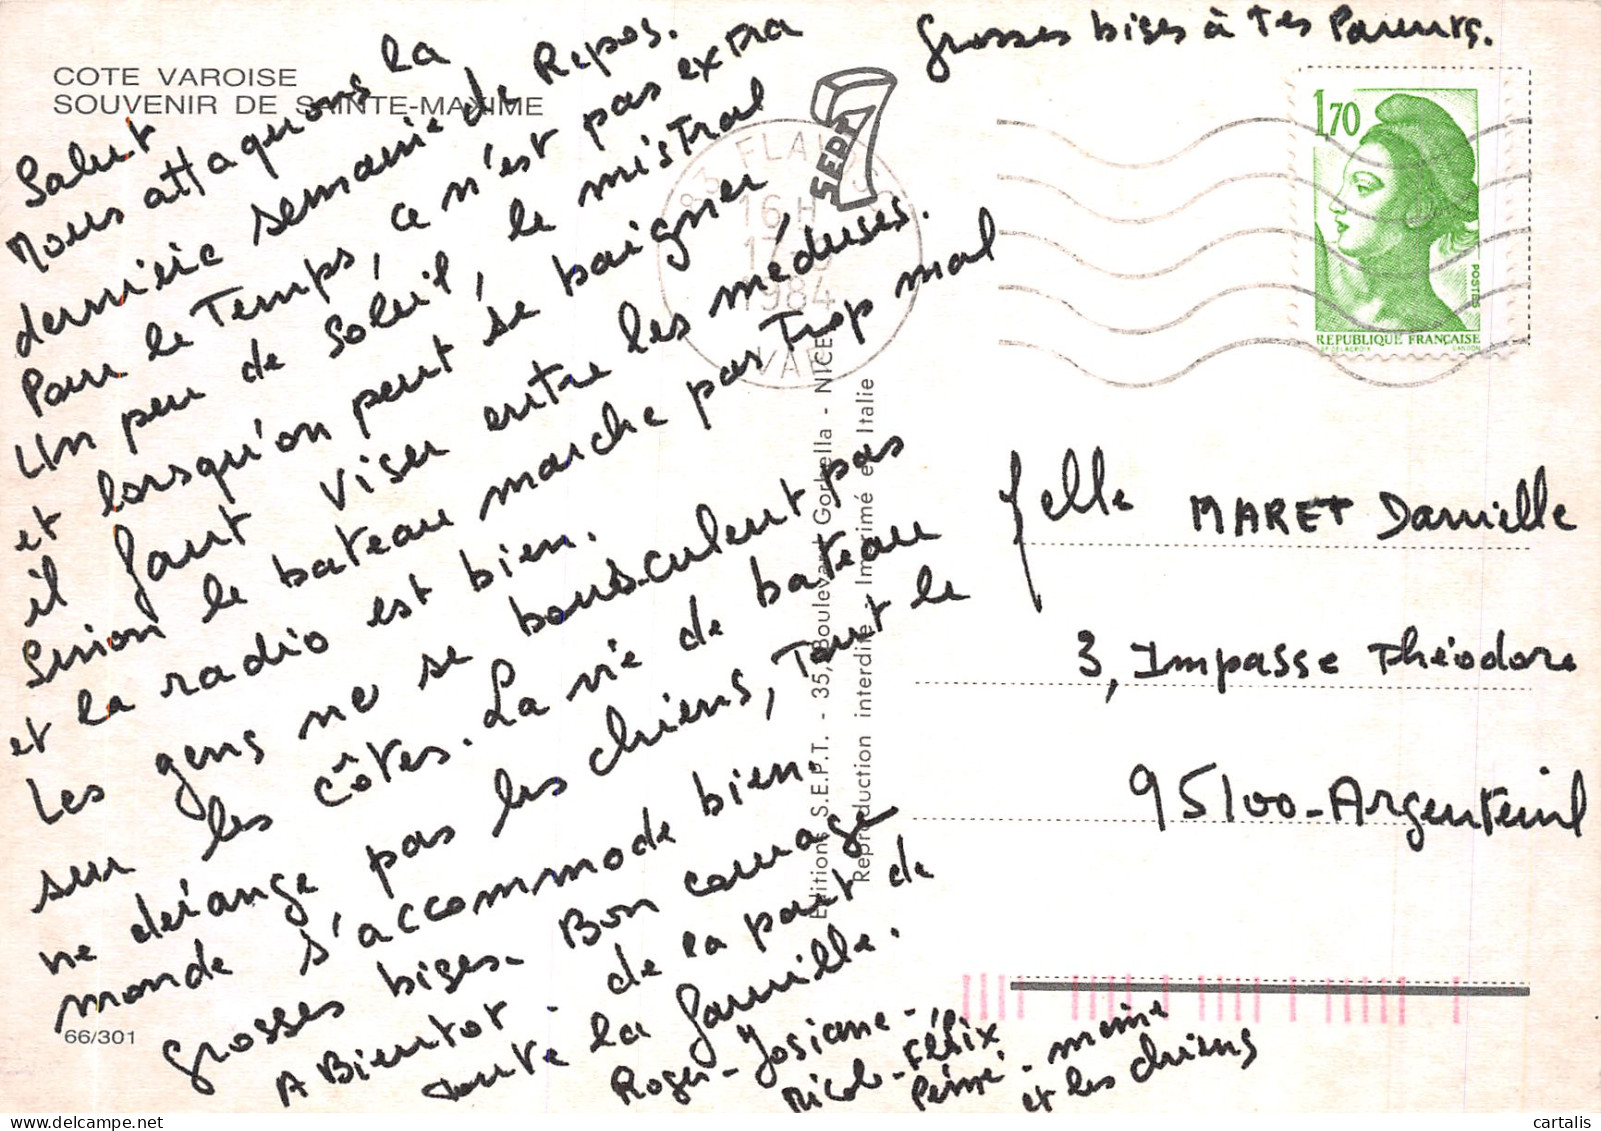 COTE VAROISE
SOUVENIR DE SAINTE-MAXIME
Salut
Nous attaquons la
dernière semaine de Repos.
Pour le Temps, ce n'est pas extra
Un peu de Soleil, le misTral
et lorsqu'on peut se baigner
il faut viser entre les méduses.
Sinon le bateau marche pas Trop mal
et la radio est bien.
Les gens ne se bousculent pas
sur les côtes. La vie de bateau
ne dérange pas les chiens, Tout le
monde s'accommode bien.
Grosses bises. Bon courage
A Bientot. de la part de
toute la famille.
Roger - Josiane -
Nicole - Félix
Pépé - mémé
et les chiens
66/301
Grosses bises à Tes Parents.
83 FLAYOSC
16 H
17
1984
VAR
SEPT 7
Editions S.E.P.T. - 35, Boulevard Gorbella - NICE
Reproduction interdite - Imprimé en Italie
1,70
POSTES
REPUBLIQUE FRANÇAISE
D'AP DELACROIX GANDON
MARET Danielle
3, Impasse Théodore
95100 - Argenteuil
cartalis.com